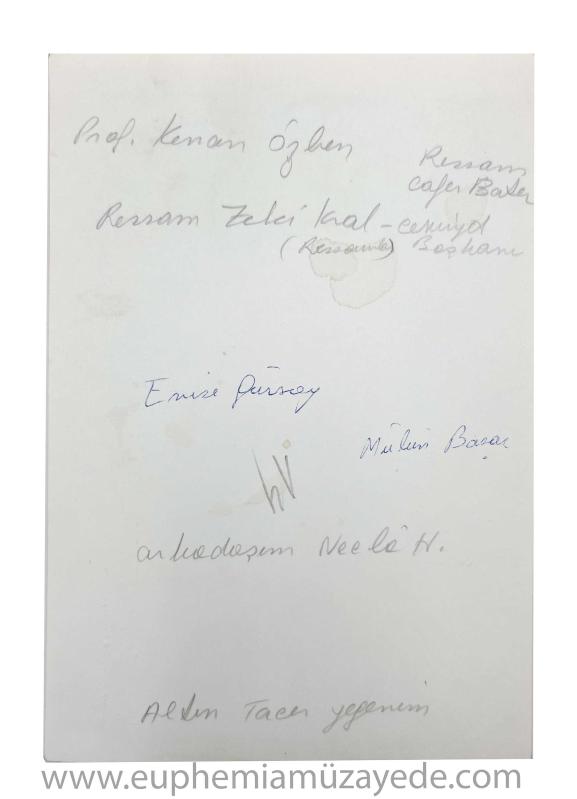 Prof. Kenan Özben
Ressam
Cafer Bater
Ressam Zeki Kral - cemiyet
(Ressamlar) Başkanı
Enise Gürsoy
Başar
arkadaşım Neclâ H.
Altın Tacer yeğenim
www.euphemiamüzayede.com